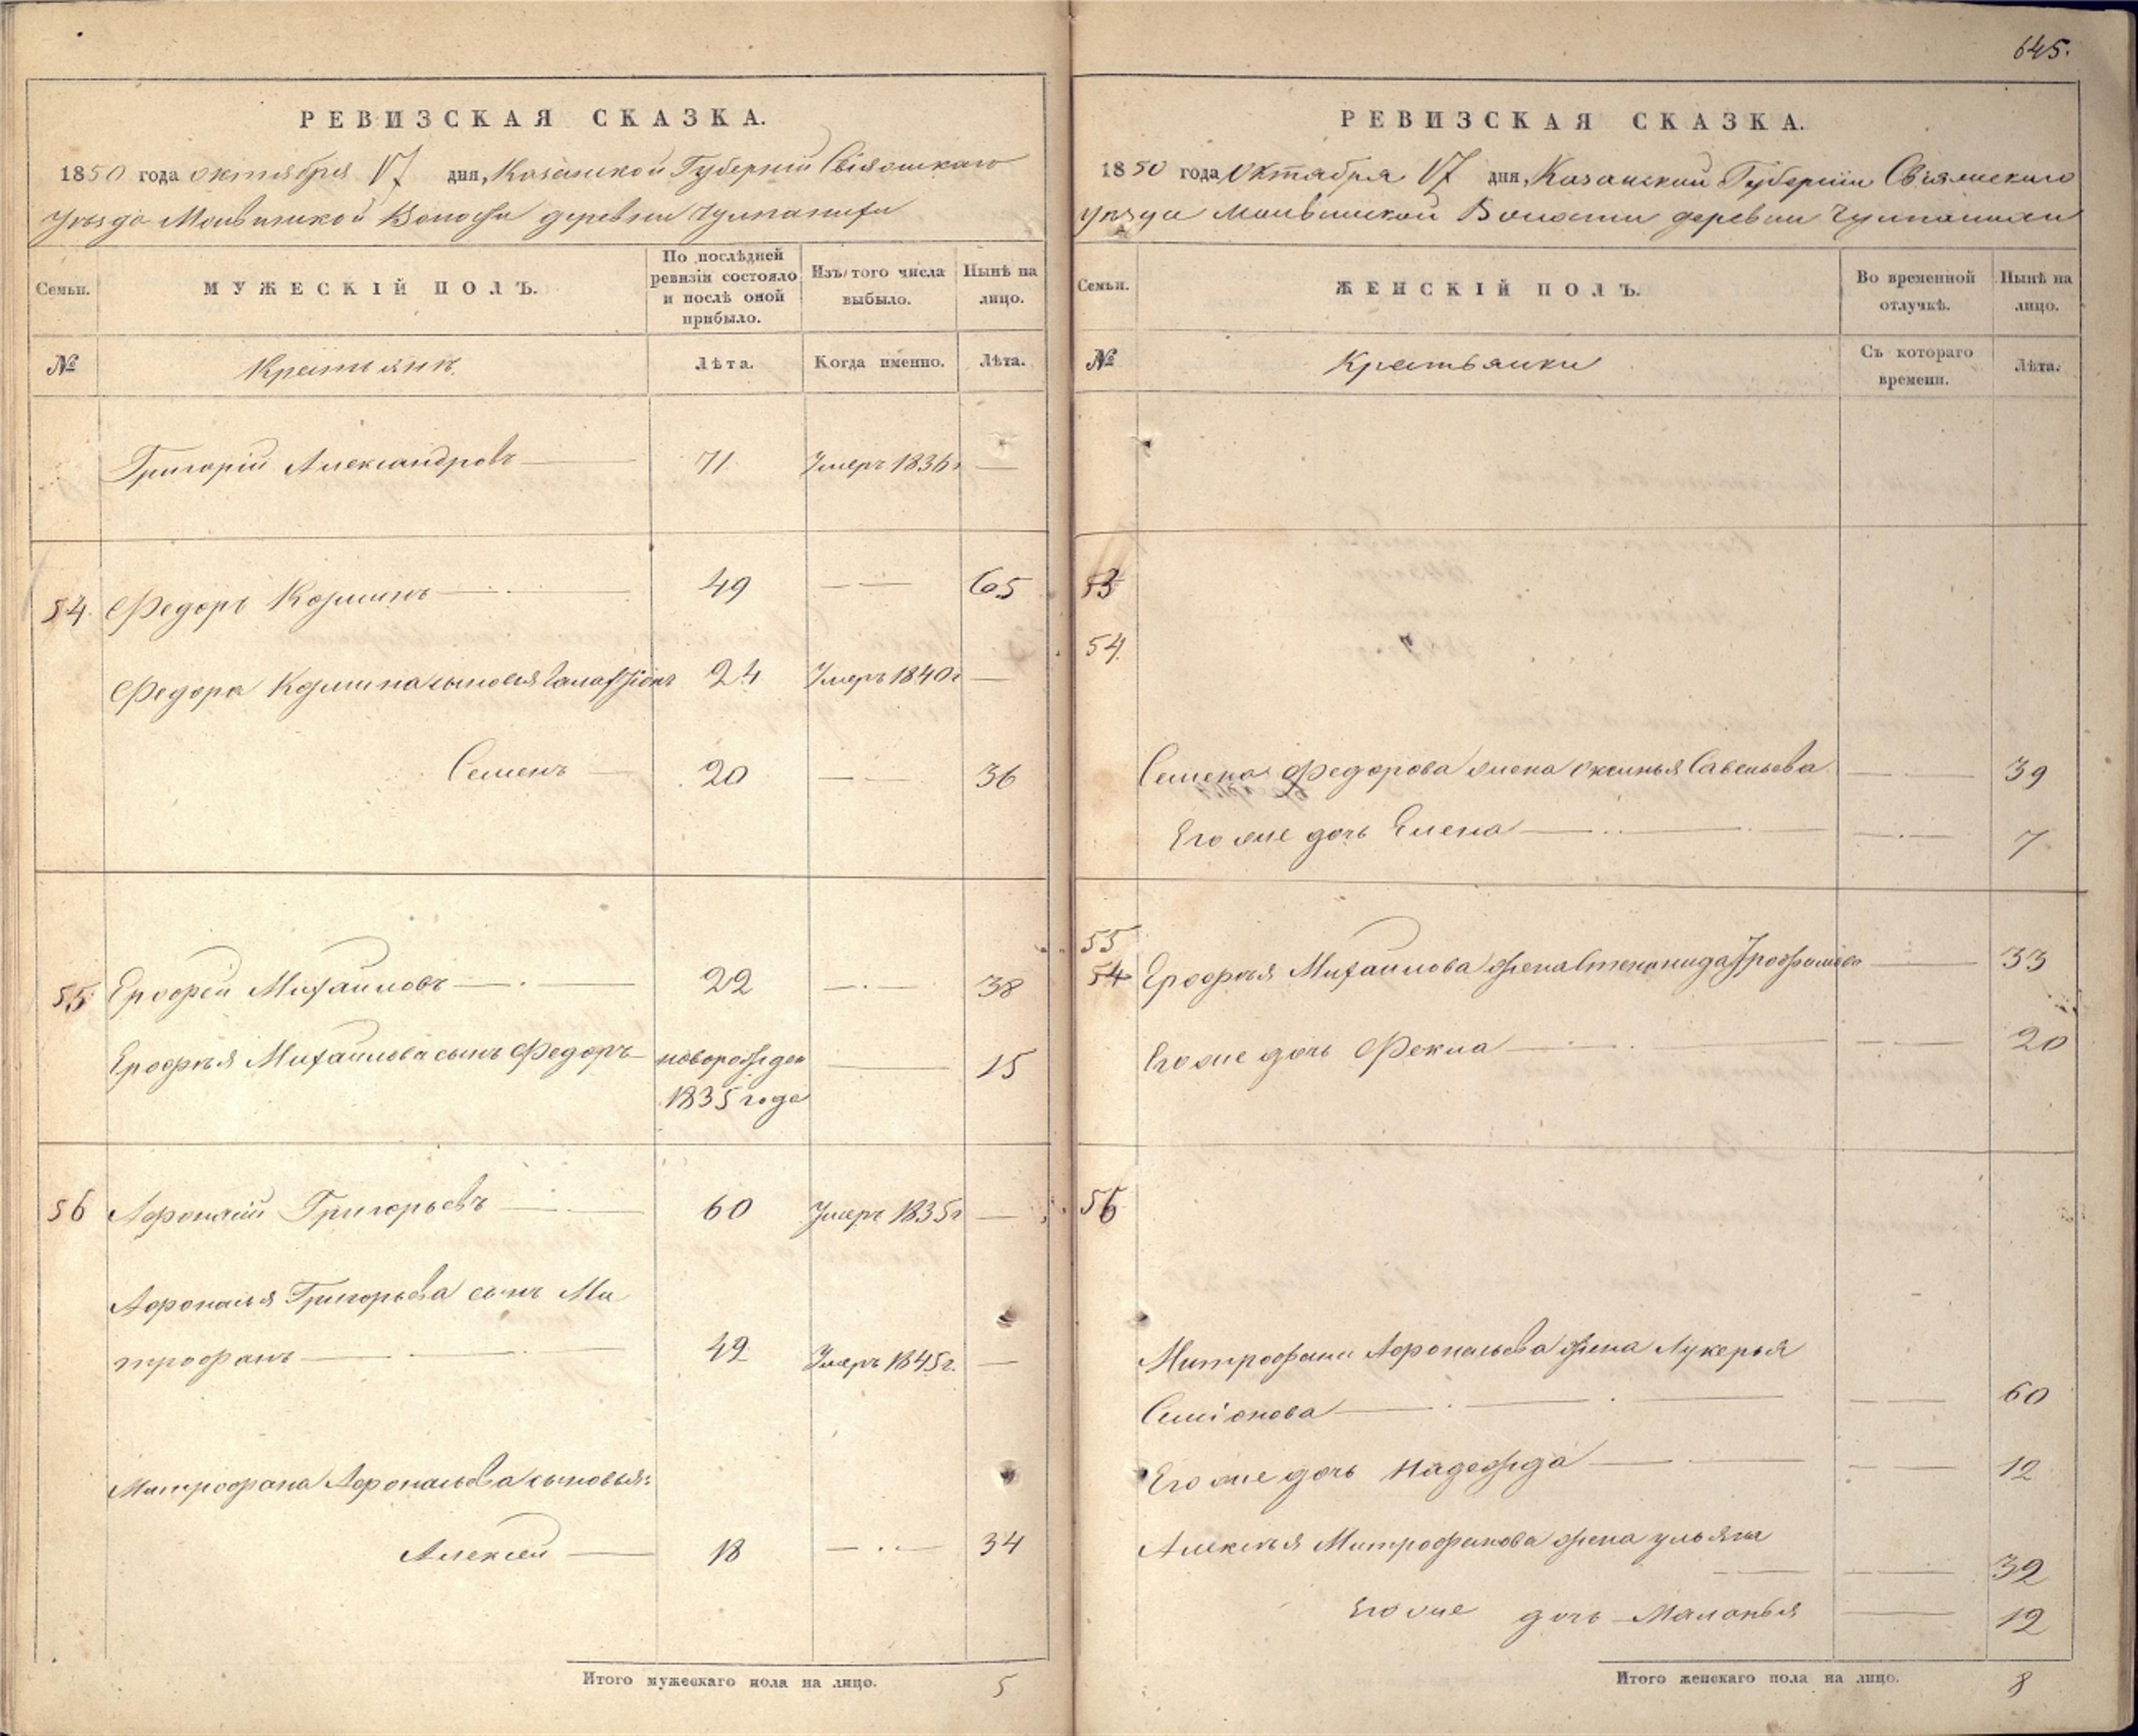 645.
РЕВИЗСКАЯ СКАЗКА.
1850 года октября 17 дня, Казанской Губерніи Свіяжскаго
Уѣзда Волости деревни
МУЖЕСКІЙ ПОЛЪ.
Семьи.
По послѣдней ревизіи состояло и послѣ оной прибыло.
Изъ того числа выбыло.
Нынѣ на лицо.
№ Крестьянъ Лѣта. Когда именно. Лѣта.
Григорій Александровъ — 71 Умеръ 1836г —
54. Федоръ Козминъ — 49 — 65
Федора Козмина сыновья 24 Умеръ 1840г —
Семенъ — 20 — 36
55 Ерофей Михайловъ — 22 — 38
Ерофѣя Михайлова сынъ Федоръ — новорожден — 15
1835 года
56 Афонасій Григорьевъ — 60 Умеръ 1835г —
Афонасья Григорьева сынъ Ми
трофанъ — 42 Умеръ 1845г. —
Митрофана Афонасьева сыновья:
Алексей — 18 — 34
Итого мужескаго пола на лицо. 5
РЕВИЗСКАЯ СКАЗКА.
1850 года Октября 17 дня, Казанской Губерніи Свіяжскаго
уѣзда Волости деревни
Семьи.
ЖЕНСКІЙ ПОЛЪ.
Во временной отлучкѣ.
Нынѣ на лицо.
№ Крестьянки Съ котораго времени. Лѣта.
53
54.
Семена Федорова жена Оксинья Савельева — 39
Его же дочь Елена — 7
55
54 Ерофѣя Михайлова жена Степонида — 33
Его же дочь Фекла — 20
56
Митрофана Афонасьева жена Лукерья
Симіонова — 60
Его же дочь Надежда — 12
Алексѣя Митрофанова жена ульяна
— 32
Его же дочь Маланья — 12
Итого женскаго пола на лицо. 8